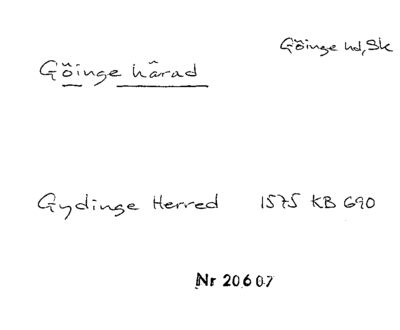 Göinge hd, Sk
Göinge härad
Gydinge Herred 1575 KB 690
Nr 20607